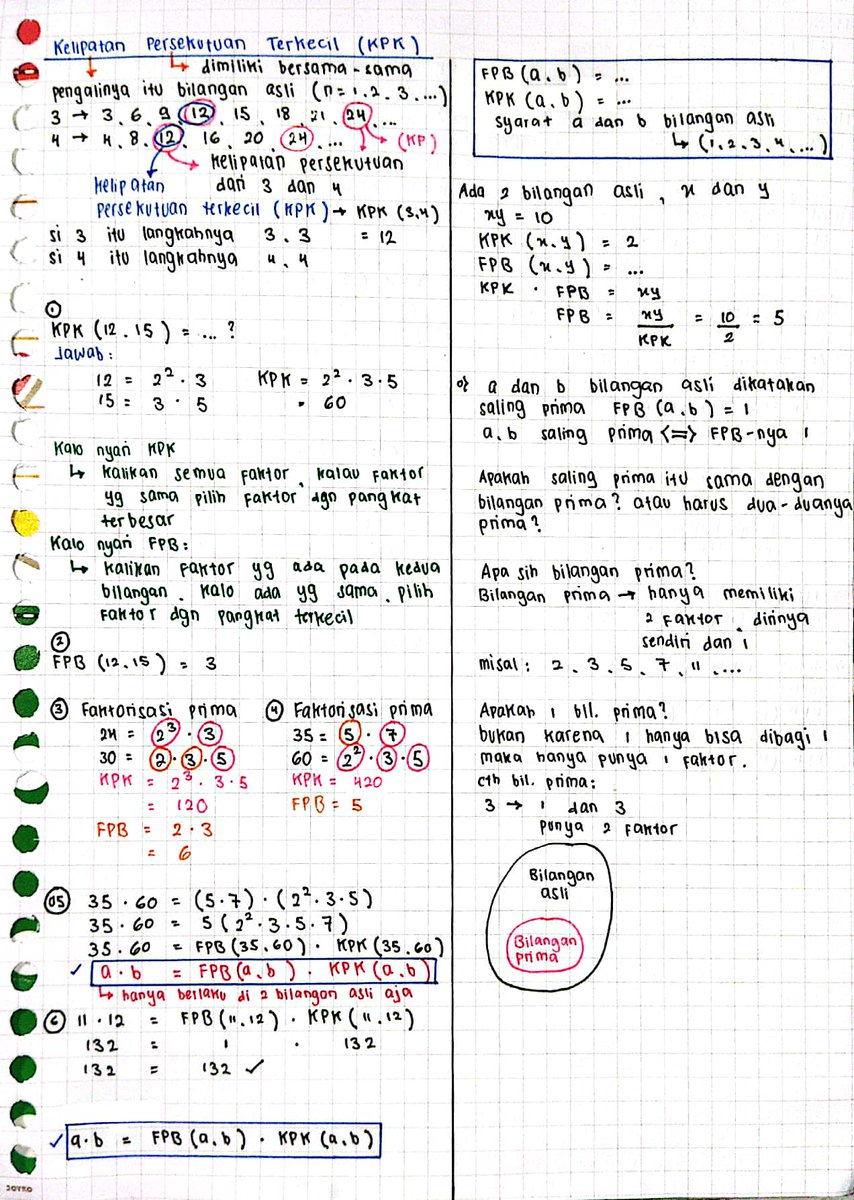 Kelipatan Persekutuan Terkecil (KPK)
dimiliki bersama-sama
pengalinya itu bilangan asli (n=1,2,3,...)
3 → 3, 6, 9, 12, 15, 18, 21, 24, ...
4 → 4, 8, 12, 16, 20, 24, ... (KP)
kelipatan persekutuan
dari 3 dan 4
kelipatan
persekutuan terkecil (KPK) → KPK (3,4)
si 3 itu langkahnya 3, 3 = 12
si 4 itu langkahnya 4, 4
①
KPK (12, 15) = ... ?
Jawab:
12 = 2² · 3 KPK = 2² · 3 · 5
15 = 3 · 5 = 60
Kalo nyari KPK
↳ kalikan semua faktor, kalau faktor
yg sama pilih faktor dgn pangkat
terbesar
Kalo nyari FPB:
↳ kalikan faktor yg ada pada kedua
bilangan, kalo ada yg sama, pilih
faktor dgn pangkat terkecil
②
FPB (12, 15) = 3
③ Faktorisasi prima
24 = 2³ · 3
30 = 2 · 3 · 5
KPK = 2³ · 3 · 5
= 120
FPB = 2 · 3
= 6
④ Faktorisasi prima
35 = 5 · 7
60 = 2² · 3 · 5
KPK = 420
FPB = 5
05 35 · 60 = (5 · 7) · (2² · 3 · 5)
35 · 60 = 5 (2² · 3 · 5 · 7)
35 · 60 = FPB (35, 60) · KPK (35, 60)
✓ a · b = FPB (a, b) · KPK (a, b)
↳ hanya berlaku di 2 bilangan asli aja
⑥ 11 · 12 = FPB (11, 12) · KPK (11, 12)
132 = 1 · 132
132 = 132 ✓
✓ a · b = FPB (a, b) · KPK (a, b)
JOYKO
FPB (a, b) = ...
KPK (a, b) = ...
syarat a dan b bilangan asli
↳ (1, 2, 3, 4, ...)
Ada 2 bilangan asli, x dan y
xy = 10
KPK (x, y) = 2
FPB (x, y) = ...
KPK · FPB = xy
FPB = xy/KPK = 10/2 = 5
a dan b bilangan asli dikatakan
saling prima FPB (a, b) = 1
a, b saling prima <=> FPB-nya 1
Apakah saling prima itu sama dengan
bilangan prima? atau harus dua-duanya
prima?
Apa sih bilangan prima?
Bilangan prima → hanya memiliki
2 faktor, dirinya
sendiri dan 1
misal: 2, 3, 5, 7, 11, ...
Apakah 1 bil. prima?
bukan karena 1 hanya bisa dibagi 1
maka hanya punya 1 faktor.
cth bil. prima:
3 → 1 dan 3
punya 2 faktor
Bilangan
asli
Bilangan
prima